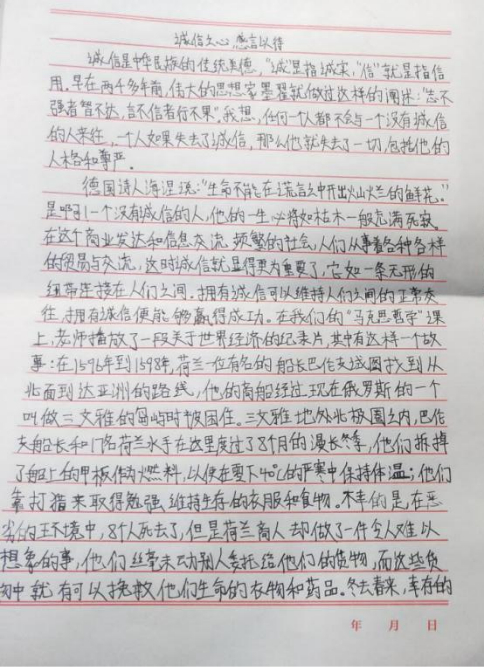 诚信之心 感言以待
诚信是中华民族的传统美德，“诚”是指诚实，“信”就是指信
用。早在两千多年前，伟大的思想家墨翟就做过这样的阐述：“志不
强者智不达，言不信者行不果”。我想，任何一个人都不会与一个没有诚信
的人来往，一个人如果失去了诚信，那么他就失去了一切，包括他的
人格和尊严。
德国诗人海涅说：“生命不能在谎言中开出灿烂的鲜花。”
是啊！一个没有诚信的人，他的一生必将如枯木一般充满死寂。
在这个商业发达和信息交流频繁的社会，人们从事着各种各样
的贸易与交流，这时诚信就显得更为重要了，它如一条无形的
纽带连接在人们之间。拥有诚信可以维持人们之间的正常交
往，拥有诚信便能够赢得成功。在我们的“马克思哲学”课
上，老师播放了一段关于世界经济的纪录片，其中有这样一个故
事：在1596年到1598年，荷兰一位有名的船长巴伦支试图找到从
北面到达亚洲的路线，他的商船经过现在俄罗斯的一个
叫做三文雅的岛屿时被困住。三文雅地处北极圈之内，巴伦
支船长和17名荷兰水手在这里度过了8个月的漫长冬季，他们拆掉
了船上的甲板作为燃料，以便在零下40℃的严寒中保持体温；他们
靠打猎来取得勉强维持生存的衣服和食物。不幸的是在恶
劣的环境中，8个人死去了，但是荷兰商人却做了一件令人难以
想象的事，他们丝毫未动别人委托给他们的货物，而这些货
物中就有可以挽救他们生命的衣物和药品。冬去春来，幸存的
年 月 日